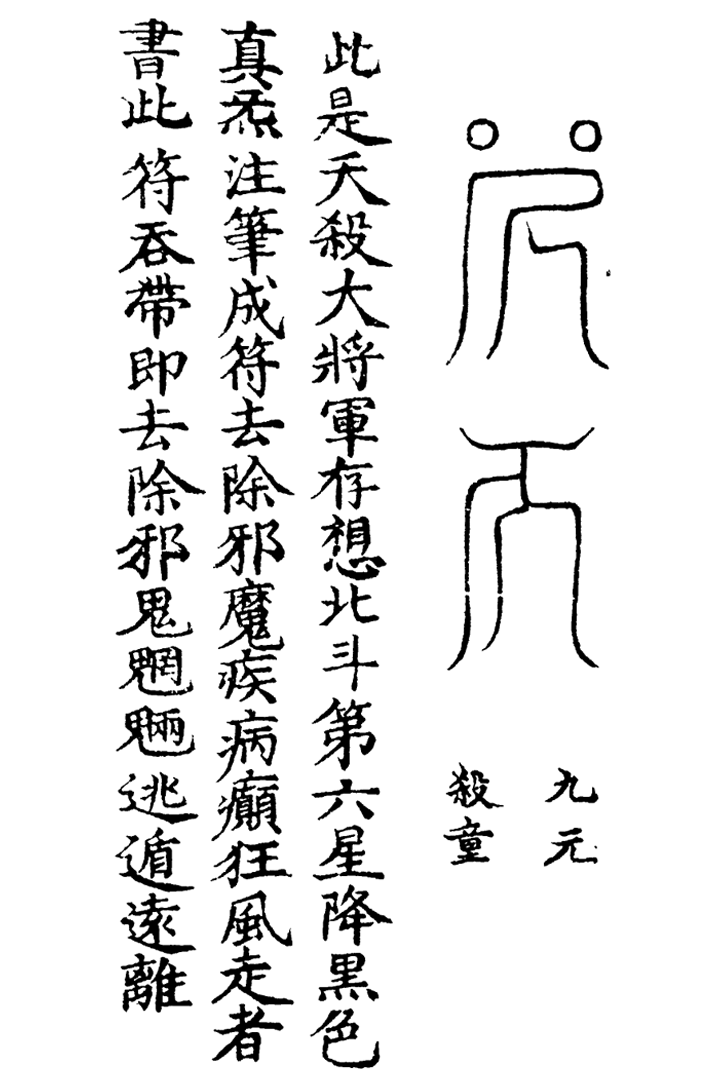 九元
殺童
此是天殺大將軍存想北斗第六星降黑色
真炁注筆成符去除邪魔疾病癲狂風走者
書此符吞帶即去除邪鬼魍魎逃遁遠離